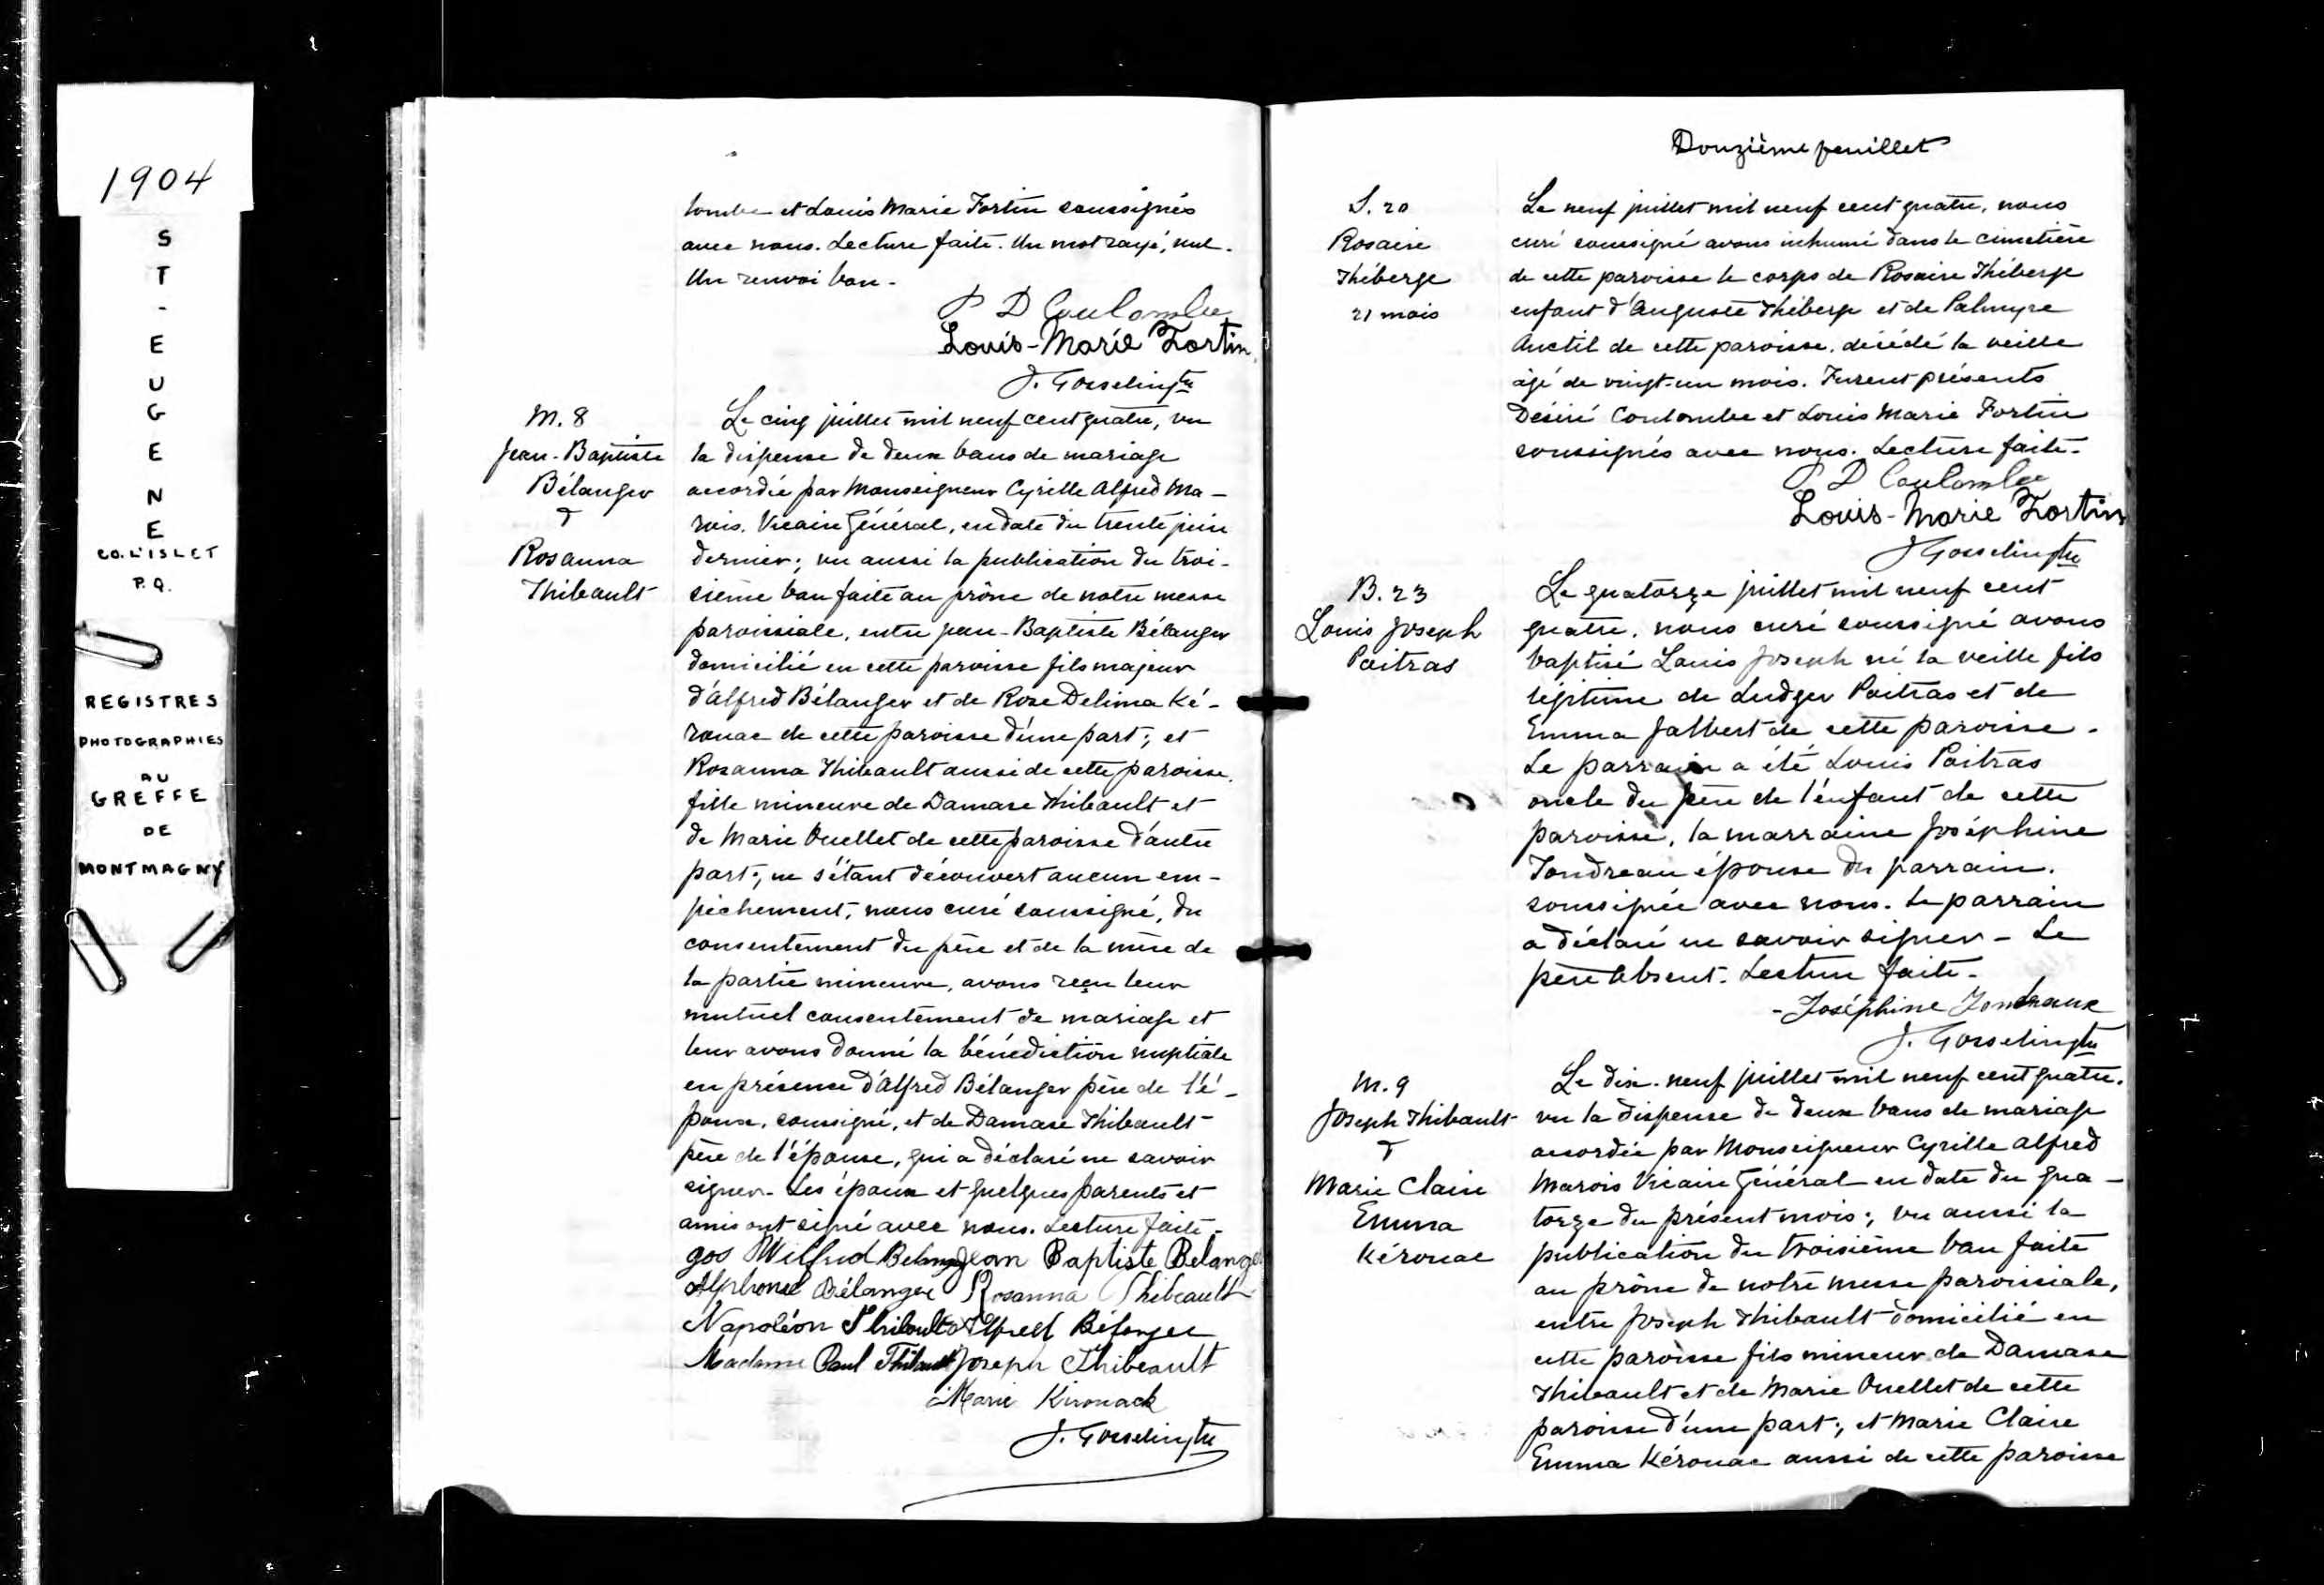 1904
S
T
-
E
U
G
E
N
E
CO. L'ISLET
P.Q.
REGISTRES
PHOTOGRAPHIES
AU
GREFFE
DE
MONTMAGNY
lombe et Louis Marie Fortin soussignés
avec nous. Lecture faite. Un mot rayé, nul.
Un renvoi bon.
P D Coulombe
Louis-Marie Fortin
J. Gosselin ptre
M. 8
Jean-Baptiste
Bélanger
&
Rosanna
Thibault
Le cinq juillet mil neuf cent quatre, vu
la dispense de deux bans de mariage
accordée par Monseigneur Cyrille Alfred Ma-
rois, Vicaire Général, en date du trente juin
dernier; vu aussi la publication du troi-
sième ban faite au prône de notre messe
paroissiale, entre Jean-Baptiste Bélanger
domicilié en cette paroisse fils majeur
d'Alfred Bélanger et de Rose Delima Ké-
rouac de cette paroisse d'une part; et
Rosanna Thibault aussi de cette paroisse,
fille mineure de Damase Thibault et
de Marie Ouellet de cette paroisse d'autre
part; ne s'étant découvert aucun em-
pêchement, nous curé soussigné, du
consentement du père et de la mère de
la partie mineure, avons reçu leur
mutuel consentement de mariage et
leur avons donné la bénédiction nuptiale
en présence d'Alfred Bélanger père de l'é-
poux, soussigné, et de Damase Thibault
père de l'épouse, qui a déclaré ne savoir
signer. Les époux et quelques parents et
amis ont signé avec nous. Lecture faite.
Jos Wilfrid Belanger Jean Baptiste Belanger
Alphonse Bélanger Rosanna Thibeault
Napoléon Thibault Alfred Bélanger
Madame Paul Thibault Joseph Thibeault
Marie Kirouack
J. Gosselin ptre
Douzième feuillet
S. 20
Rosaire
Théberge
21 mois
Le neuf juillet mil neuf cent quatre, nous
curé soussigné avons inhumé dans le cimetière
de cette paroisse le corps de Rosaire Théberge
enfant d'Auguste Théberge et de Palmyre
Anctil de cette paroisse, décédé la veille
âgé de vingt-un mois. Furent présents
Désiré Coulombe et Louis Marie Fortin
soussignés avec nous. Lecture faite.
P D Coulombe
Louis-Marie Fortin
J Gosselin ptre
B. 23
Louis Joseph
Poitras
Le quatorze juillet mil neuf cent
quatre, nous curé soussigné avons
baptisé Louis Joseph né la veille fils
légitime de Ludger Poitras et de
Emma Jalbert de cette paroisse.
Le parrain a été Louis Poitras
oncle du père de l'enfant de cette
paroisse, la marraine Joséphine
Tondreau épouse du parrain,
soussignée avec nous. Le parrain
a déclaré ne savoir signer - Le
père absent. Lecture faite.
-Joséphine Tondreaux
J. Gosselin ptre
M. 9
Joseph Thibault
&
Marie Claire
Emma
Kérouac
Le dix-neuf juillet mil neuf cent quatre,
vu la dispense de deux bans de mariage
accordée par Monseigneur Cyrille Alfred
Marois Vicaire Général en date du qua-
torze du présent mois; vu aussi la
publication du troisième ban faite
au prône de notre messe paroissiale,
entre Joseph Thibault domicilié en
cette paroisse fils mineur de Damase
Thibault et de Marie Ouellet de cette
paroisse d'une part; et Marie Claire
Emma Kérouac aussi de cette paroisse